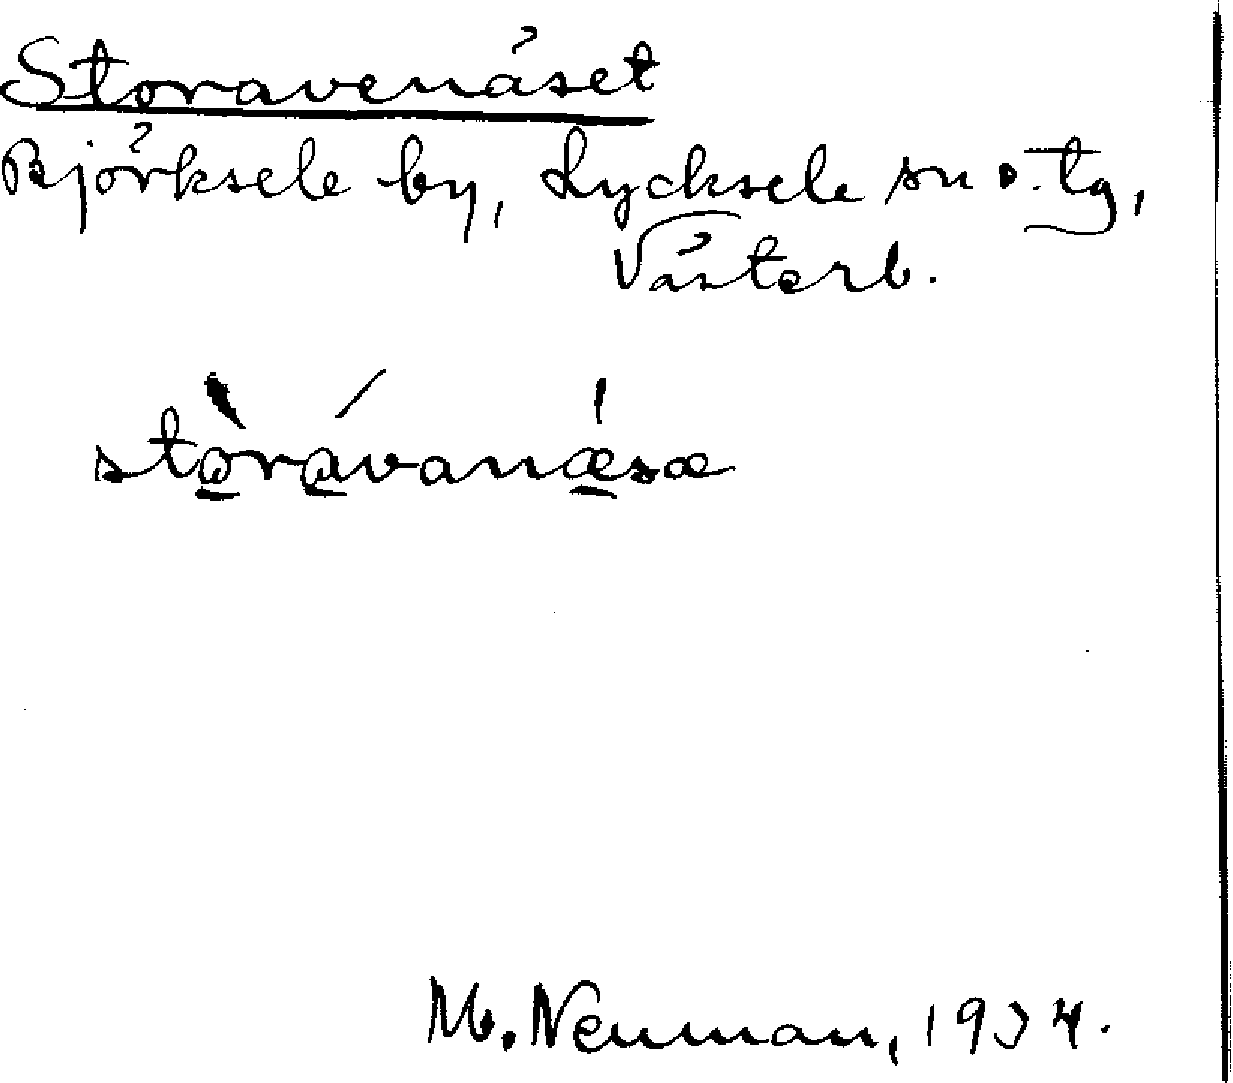 Storavenäset
Björksele by, Lycksele sn o. tg,
Västerb.
stò̱rá̱vanæ̱̍sæ
M. Neuman, 1934.